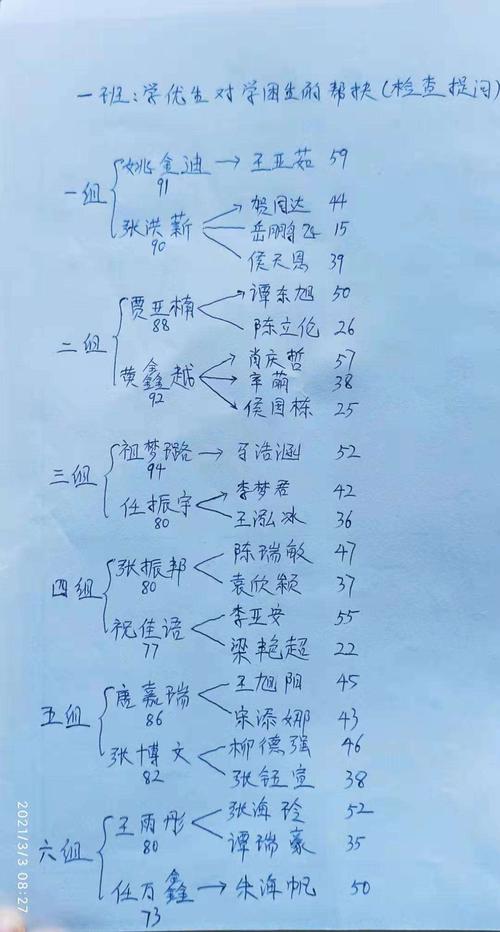 一班：学优生对学困生的帮扶（检查提问）
一组
姚金迪 → 王亚茹 59
91
张洪薪 贺同达 44
90 岳鹏飞 15
侯天恩 39
二组
贾亚楠 谭东旭 50
88 陈立伦 26
黄鑫越 肖庆哲 57
92 辛萌 38
侯国栋 25
三组
祖梦璐 → 于浩涵 52
94
任振宇 李梦君 42
80 王泓冰 36
四组
张振邦 陈瑞敏 47
80 袁欣颖 37
祝佳语 李亚安 55
77 梁艳超 22
五组
唐嘉瑞 王旭阳 45
86 宋添娜 43
张博文 柳德强 46
82 张钰宣 38
六组
王雨彤 张海玲 52
80 谭瑞豪 35
任万鑫 → 朱海帆 50
73
2021/3/3 08:27